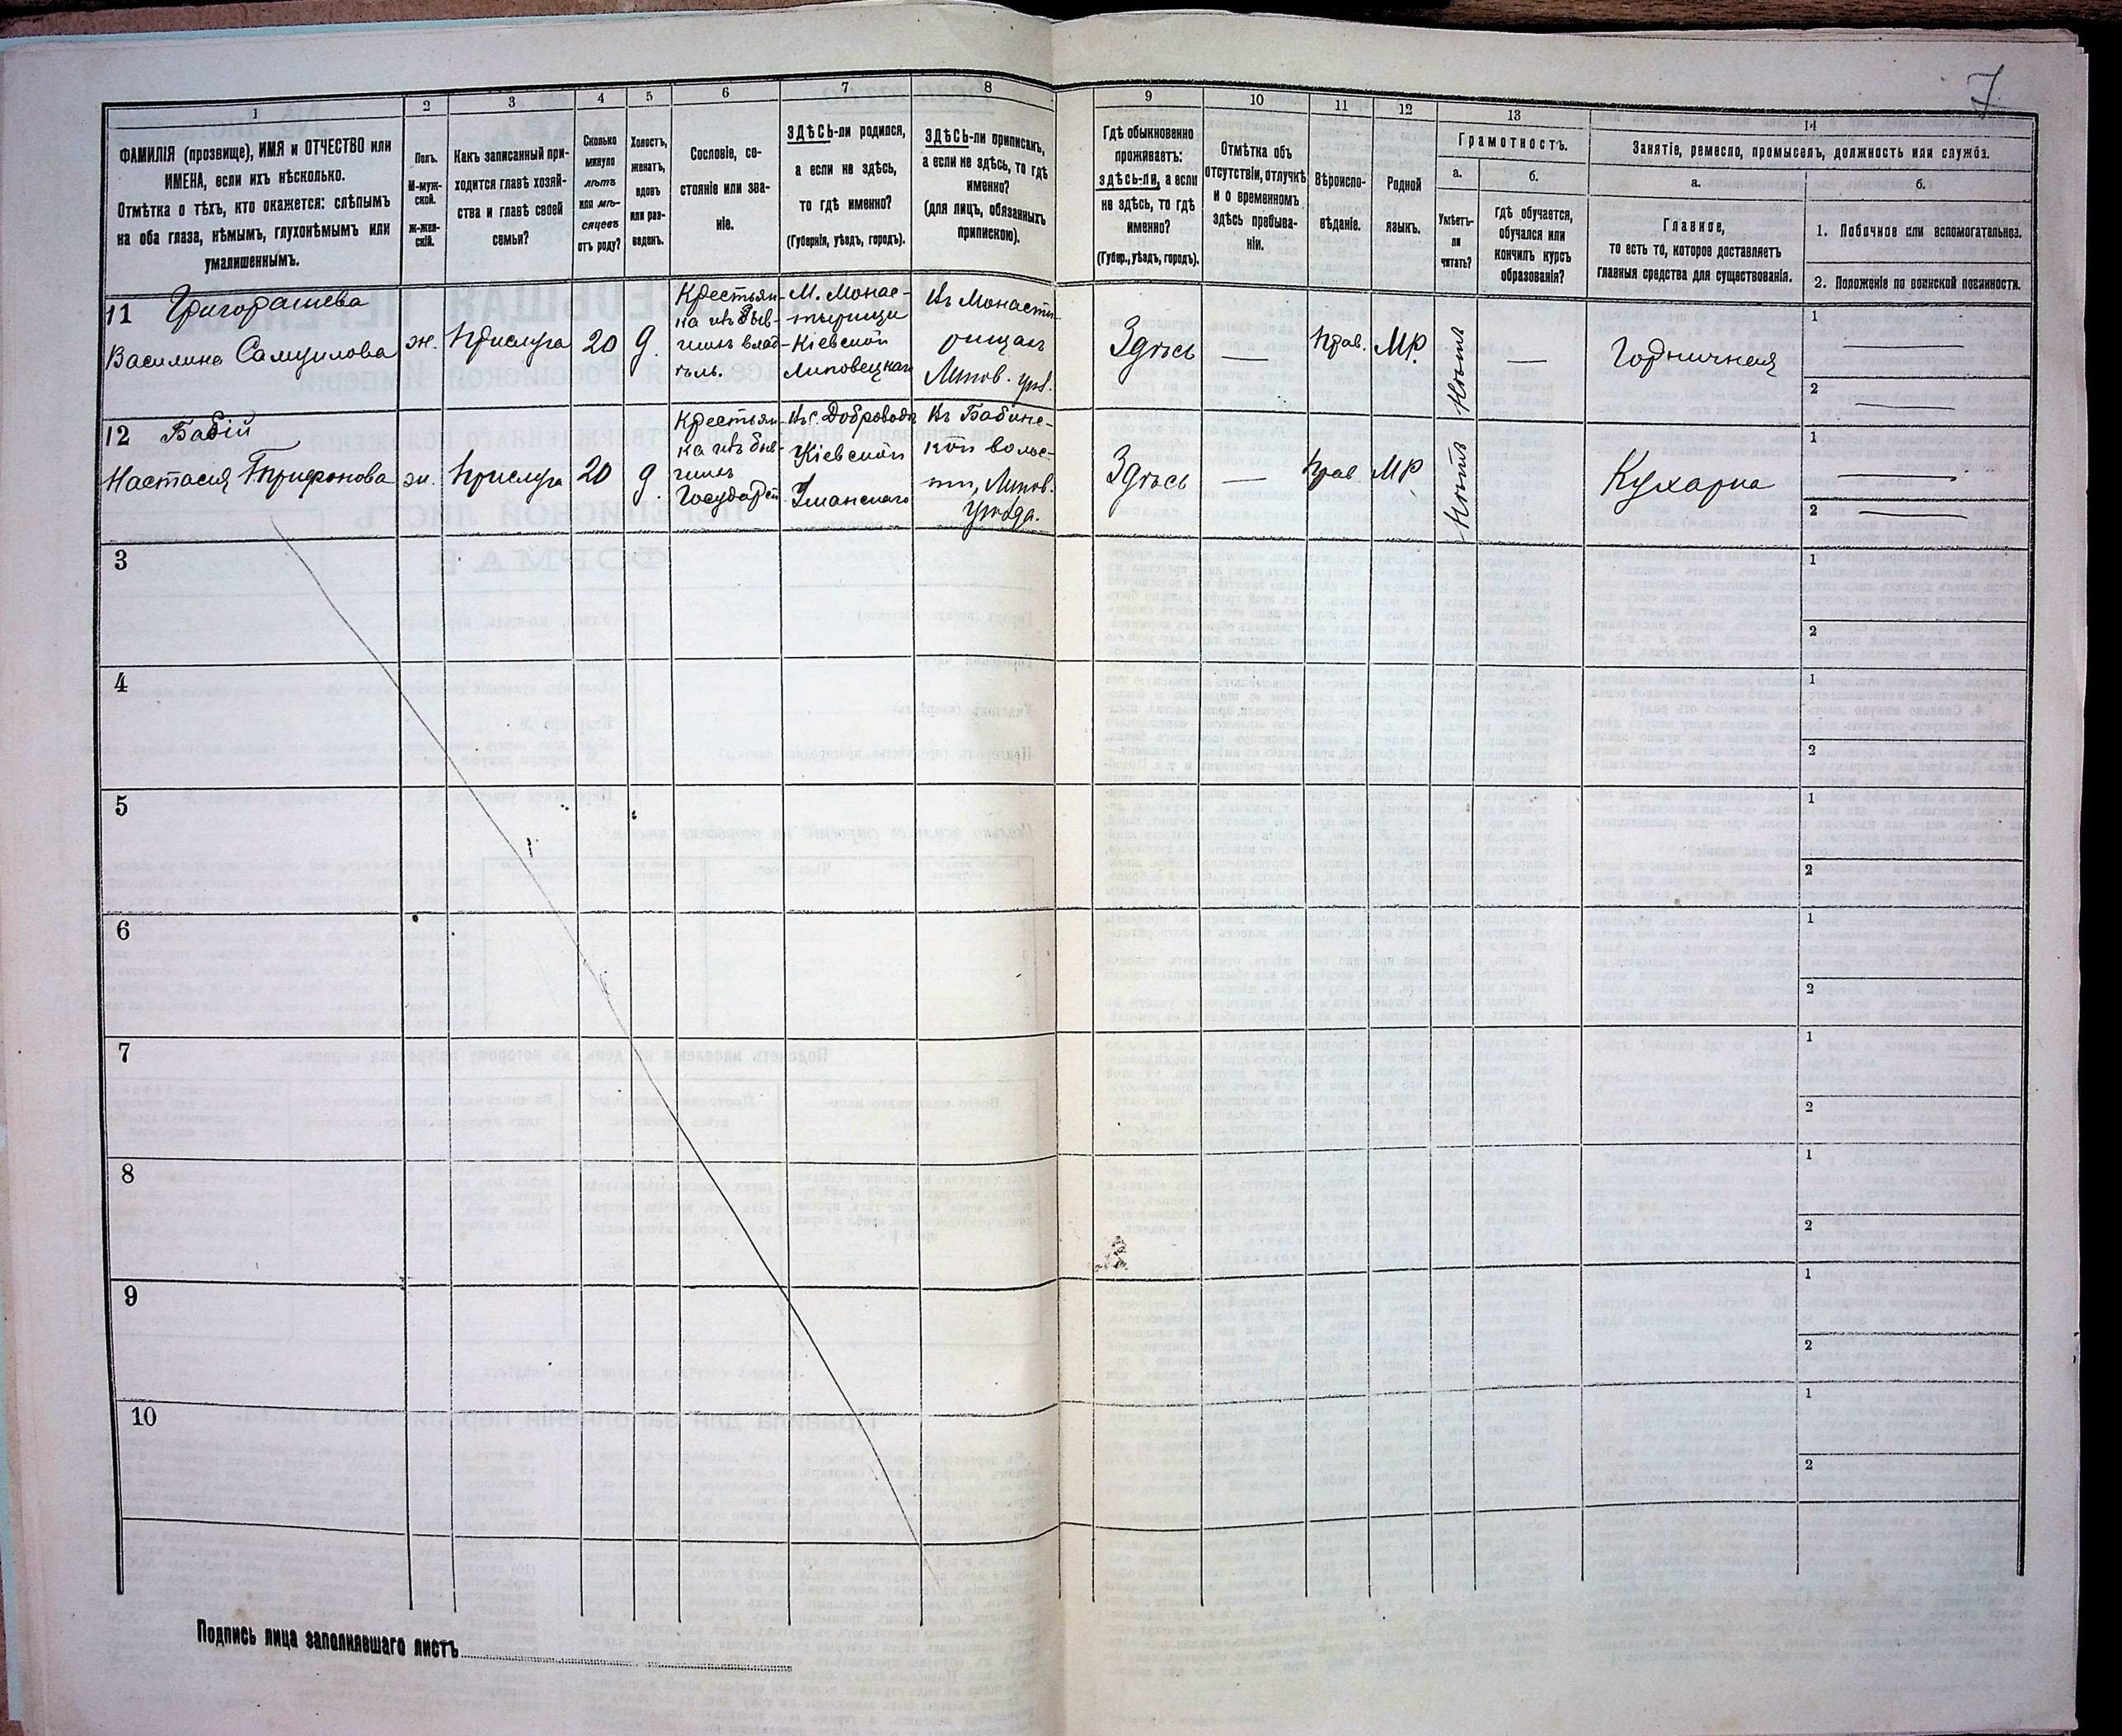 7
1
2
3
4
5
6
7
8
9
10
11
12
13
14
ФАМИЛІЯ (прозвище), ИМЯ и ОТЧЕСТВО или
ИМЕНА, если ихъ нѣсколько.
Отмѣтка о тѣхъ, кто окажется: слѣпымъ
на оба глаза, нѣмымъ, глухонѣмымъ или
умалишеннымъ.
Полъ.
М-муж-
ской.
Ж-жен-
скій.
Какъ записанный при-
ходится главѣ хозяй-
ства и главѣ своей
семьи?
Сколько
минуло
лѣтъ
или мѣ-
сяцевъ
отъ роду?
Холостъ,
женатъ,
вдовъ
или раз-
веденъ.
Сословіе, со-
стояніе или зва-
ніе.
ЗДѢСЬ-ли родился,
а если не здѣсь,
то гдѣ именно?
(Губернія, уѣздъ, городъ).
ЗДѢСЬ-ли приписанъ,
а если не здѣсь, то гдѣ
именно?
(для лицъ, обязанныхъ
припискою).
Гдѣ обыкновенно
проживаетъ:
здѣсь-ли, а если
не здѣсь, то гдѣ
именно?
(Губер., уѣздъ, городъ).
Отмѣтка объ
отсутствіи, отлучкѣ
и о временномъ
здѣсь пребыва-
ніи.
Вѣроиспо-
вѣданіе.
Родной
языкъ.
Грамотность.
а.
б.
Умѣетъ-
ли
читать?
гдѣ обучается,
обучался или
кончилъ курсъ
образованія?
Занятіе, ремесло, промыселъ, должность или служба.
а.
б.
Главное,
то есть то, которое доставляетъ
главныя средства для существованія.
1. Побочное или вспомогательное.
2. Положеніе по воинской повинности.
11 Григорашева
Василина Самуилова
ж.
Прислуга
20
д.
Крестьян-
ка изъ быв-
шихъ влад-
ѣль.
М. Монас-
тырище
Кіевской
Липовецкаго
Въ Монасты-
рищахъ
Липов. уѣзд.
Здѣсь
—
Прав.
МР.
Нѣтъ
—
Горничная
1
2
12 Бабій
Настасія Трифонова
ж.
Прислуга
20
д.
Крестьян-
ка изъ быв-
шихъ
Государст
Въ с. Доброводы
Кіевской
Уманскаго
Въ Бабинс-
кой волос-
ти, Липов.
уѣзда.
Здѣсь
—
Прав.
МР.
Нѣтъ
Кухарка
1
2
3
1
2
4
1
2
5
1
2
6
1
2
7
1
2
8
1
2
9
1
2
10
1
2
Подпись лица заполнявшаго листъ